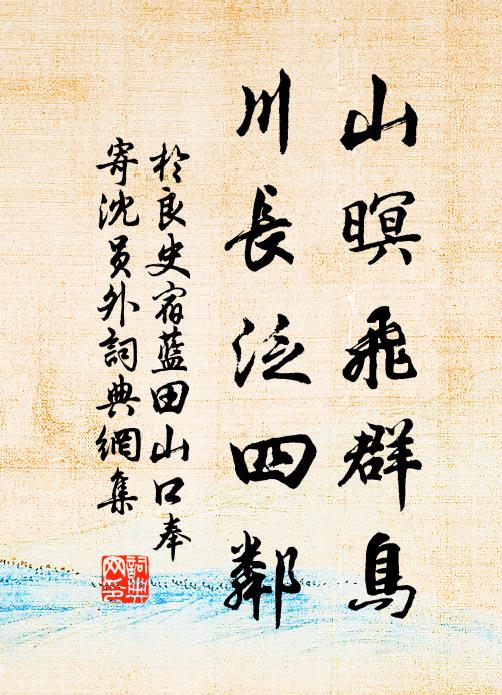 山暝飛群鳥
川長泛四鄰
於良史宿藍田山口奉
寄沈員外詞典網集